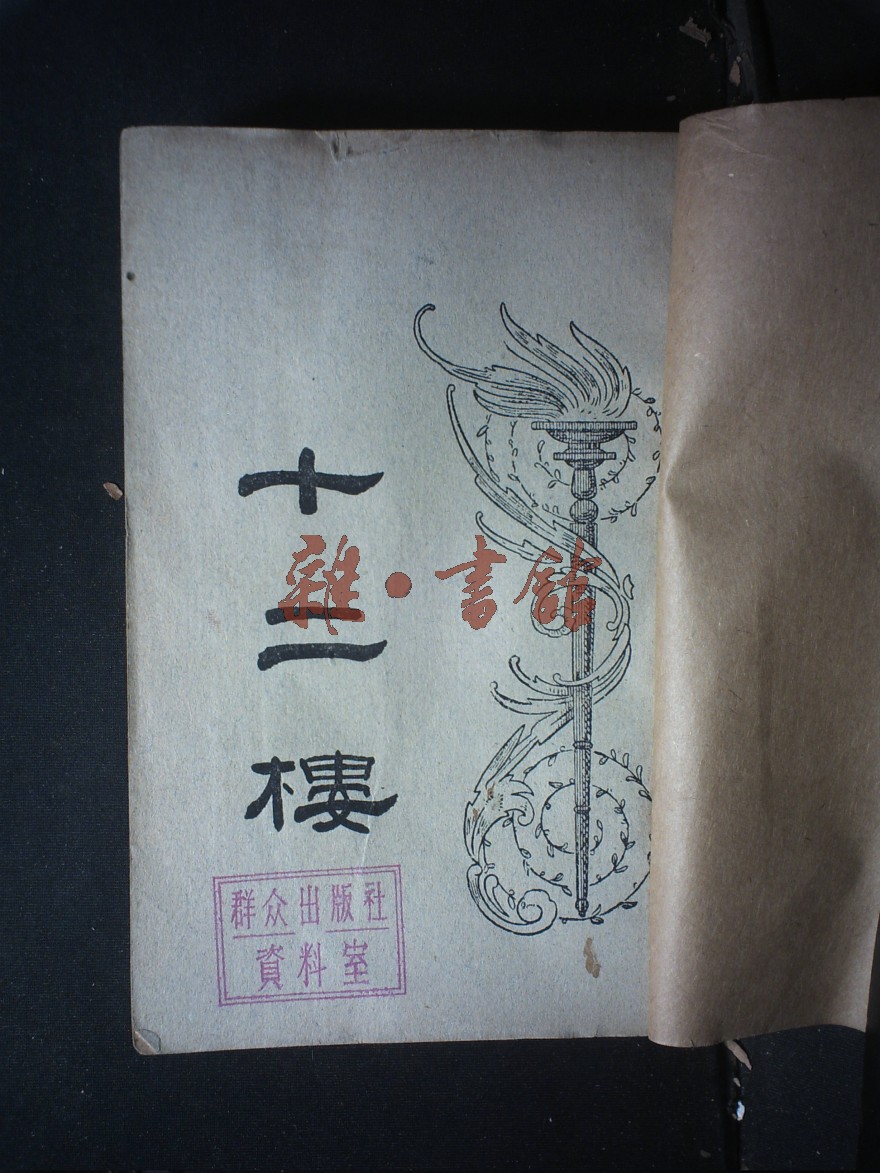 十二樓
雜·書館
群众出版社
資料室